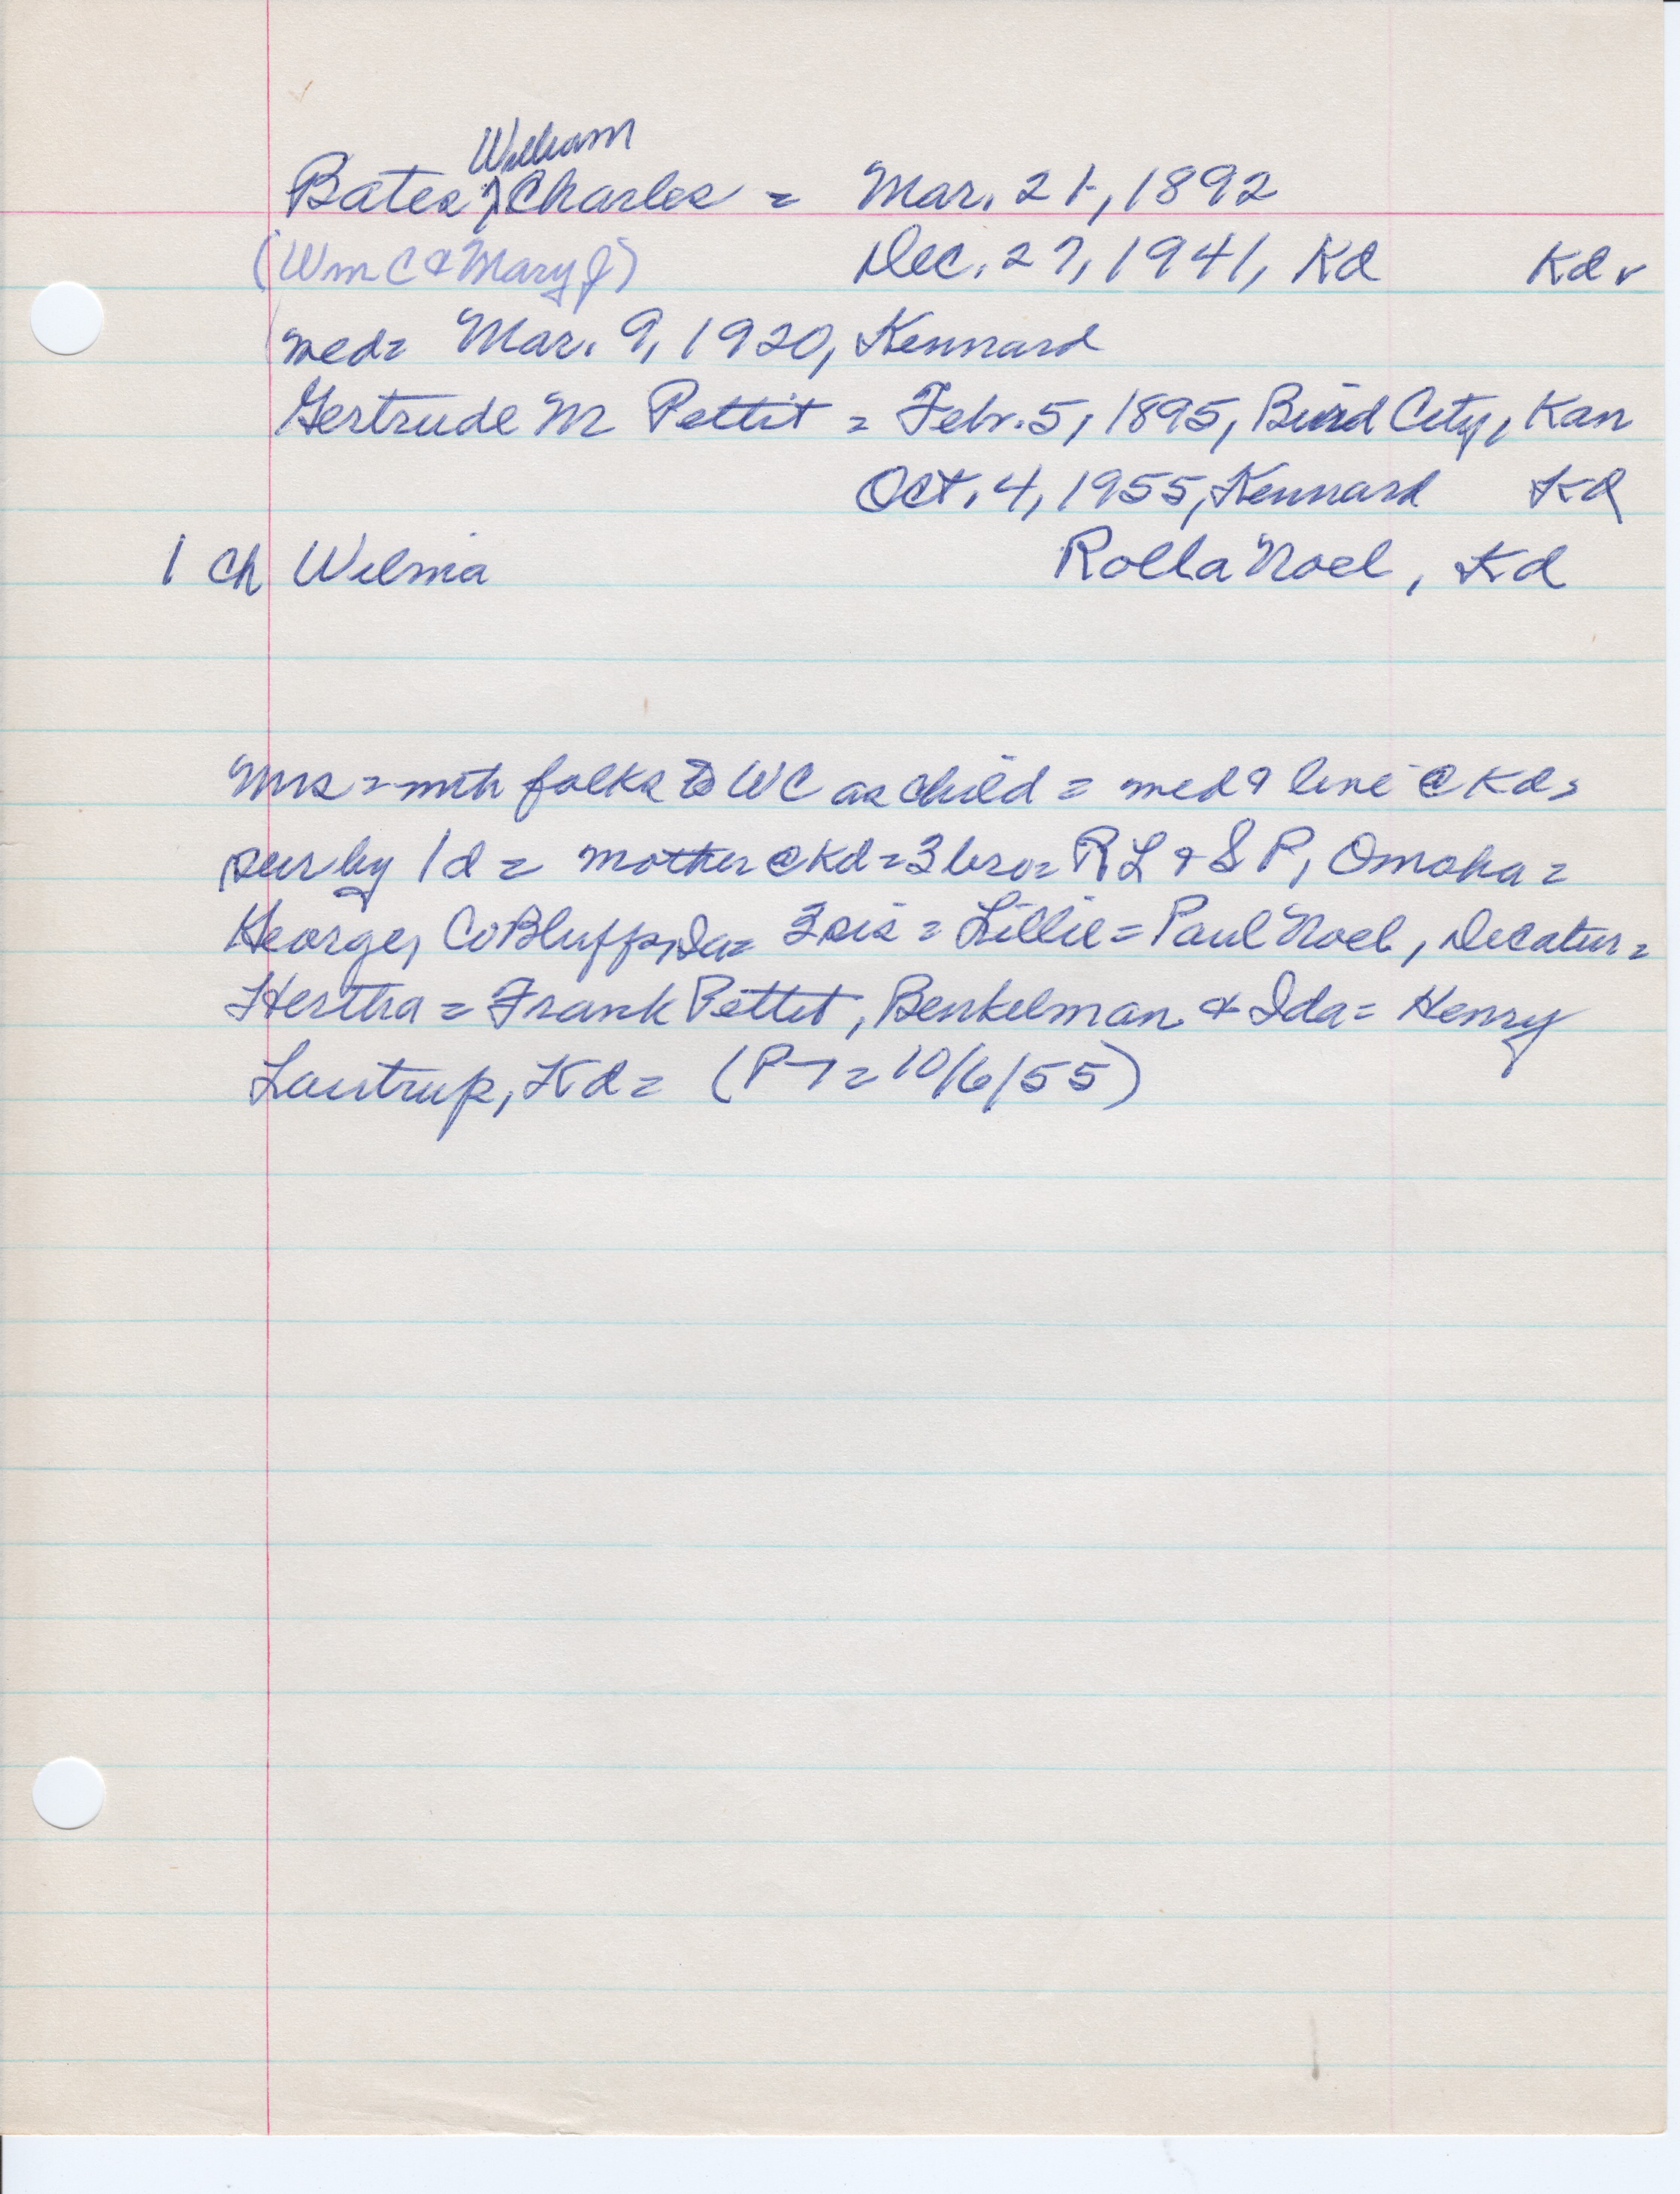 William
Bates, Charles = Mar. 21, 1892
(Wm C & Mary J) Dec. 27, 1941, Kd Kd ✓
med = Mar. 9, 1920, Kennard
Gertrude M Pettit = Febr. 5, 1895, Bird City, Kan
Oct. 4, 1955, Kennard Kd
1 ch Wilma Rolla Noel, Kd
Mrs = folks to WC as child = med & live @ Kd =
sur by 1 d = mother @ Kd = 3 bro = R L & S P, Omaha =
George, Co Bluffs, Ia = 3 sis = Lillie = Paul Noel, Decatur =
Hertha = Frank Pettit, Benkelman & Ida = Henry
Laustrup, Kd = (P T = 10/6/55)